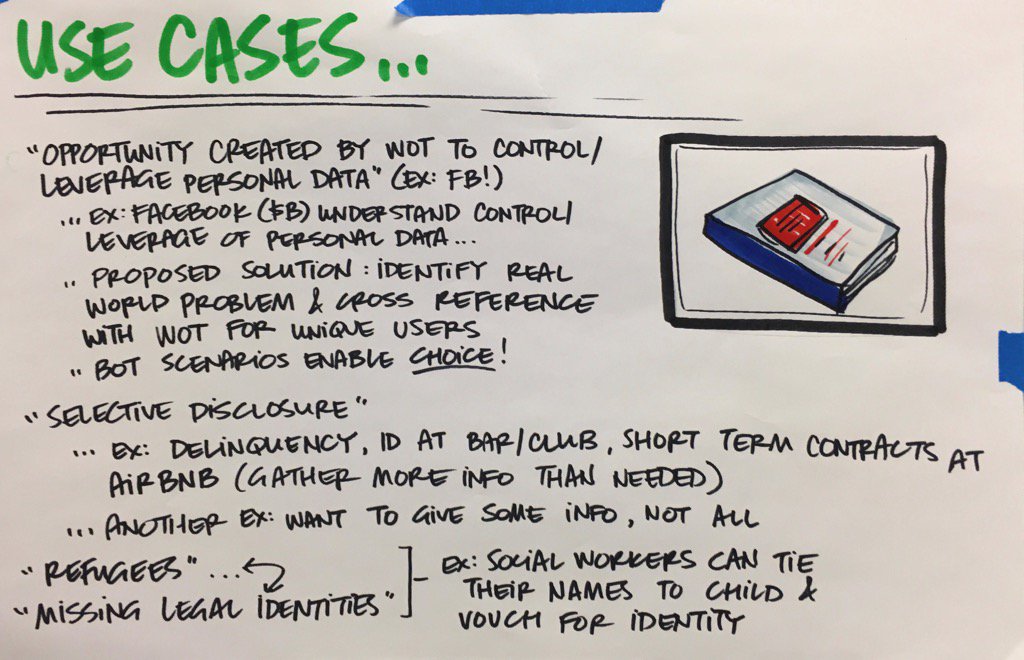 USE CASES...
"OPPORTUNITY CREATED BY WOT TO CONTROL/
LEVERAGE PERSONAL DATA" (EX: FB!)
... EX: FACEBOOK ($B) UNDERSTAND CONTROL/
LEVERAGE OF PERSONAL DATA...
.. PROPOSED SOLUTION: IDENTIFY REAL
WORLD PROBLEM & CROSS REFERENCE
WITH WOT FOR UNIQUE USERS
.. BOT SCENARIOS ENABLE CHOICE!
"SELECTIVE DISCLOSURE"
... EX: DELINQUENCY, ID AT BAR/CLUB, SHORT TERM CONTRACTS AT
AIRBNB (GATHER MORE INFO THAN NEEDED)
... ANOTHER EX: WANT TO GIVE SOME INFO, NOT ALL
"REFUGEES"...
"MISSING LEGAL IDENTITIES"
EX: SOCIAL WORKERS CAN TIE
THEIR NAMES TO CHILD &
VOUCH FOR IDENTITY